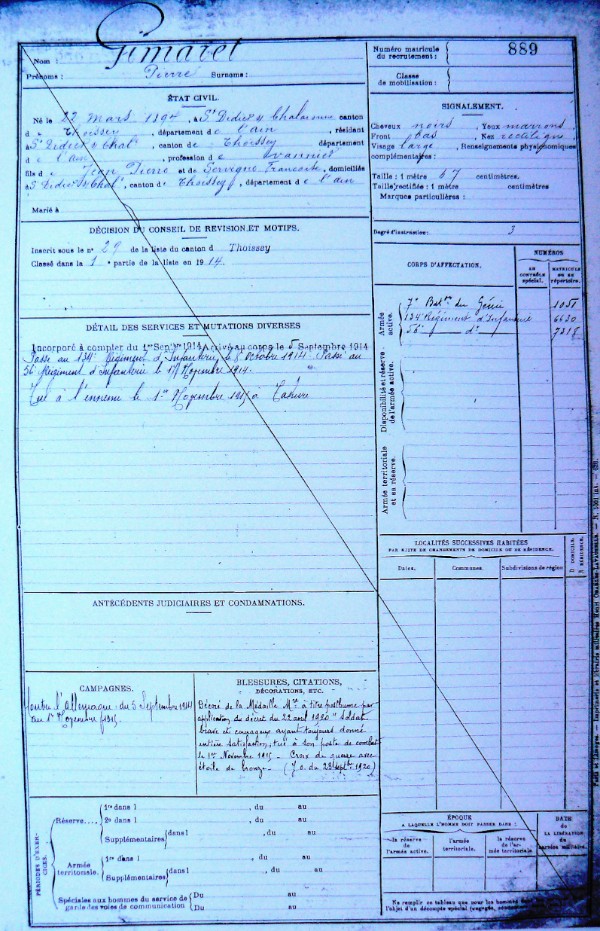 Nom : Gimaret
Prénoms : Pierre Surnoms :
ÉTAT CIVIL.
Né le 22 Mars 1894, à St Didier s Chalaronne canton
d e Thoissey, département d e l'ain, résidant
à St Didier s Chal., canton d e Thoissey département
d e l'ain, profession d e vannier
fils d e Jean Pierre et d e Françoise, domiciliés
à St Didier s Chal., canton d e Thoissey, département d e l'ain
Marié à
DÉCISION DU CONSEIL DE REVISION ET MOTIFS.
Inscrit sous le no 29 de la liste du canton d Thoissey
Classé dans la 1e partie de la liste en 1914.
DÉTAIL DES SERVICES ET MUTATIONS DIVERSES
Incorporé à compter du 1er Sepbre 1914 Arrivé au corps le 5 Septembre 1914
Passé au 134e Régiment d'Infanterie le 8 Octobre 1914. Passé au
56e Régiment d'Infanterie le 17 Novembre 1914.
Tué à l'ennemi le 1er Novembre 1915 à Tahure
ANTÉCÉDENTS JUDICIAIRES ET CONDAMNATIONS.
CAMPAGNES.
Contre l'Allemagne du 5 Septembre 1914
au 1er Novembre 1915.
BLESSURES, CITATIONS,
DÉCORATIONS, ETC.
Décoré de la Médaille Mre à titre posthume par
application du décret du 22 avril 1920 "Soldat
brave et courageux ayant toujours donné
entière satisfaction, tué à son poste de combat
le 1er Novembre 1915 - Croix de guerre avec
étoile de bronze - (J.O. du 23 Sept. 1920)
PÉRIODES D'EXERCICES.
Réserve....
1re dans l , du au
2e dans l , du au
Supplémentaires dans l , du au
Armée territoriale.
1re dans l , du au
Supplémentaires dans l , du au
Spéciales aux hommes du service de garde des voies de communication
Du au
Du au
Numéro matricule du recrutement : 889
Classe de mobilisation :
SIGNALEMENT.
Cheveux noirs, Yeux marrons
Front bas, Nez rectiligne,
Visage large, Renseignements physionomiques
complémentaires :
Taille : 1 mètre 67 centimètres.
Taille rectifiée : 1 mètre centimètres
Marques particulières :
Degré d'instruction : 3
CORPS D'AFFECTATION.
NUMÉROS
AU CONTRÔLE spécial.
MATRICULE OU AU répertoire.
Armée active.
7e Baton du Génie 1051
134e Régiment d'Infanterie 6630
56e d° 7318
Disponibilité et réserve de l'armée active.
Armée territoriale et sa réserve.
LOCALITÉS SUCCESSIVES HABITÉES
PAR SUITE DE CHANGEMENTS DE DOMICILE OU DE RÉSIDENCE.
Dates.
Communes.
Subdivisions de région
D DOMICILE.
R RÉSIDENCE.
ÉPOQUE
A LAQUELLE L'HOMME DOIT PASSER DANS :
la réserve de l'armée active.
l'armée territoriale.
la réserve de l'armée territoriale
DATE de LA LIBÉRATION du service militaire.